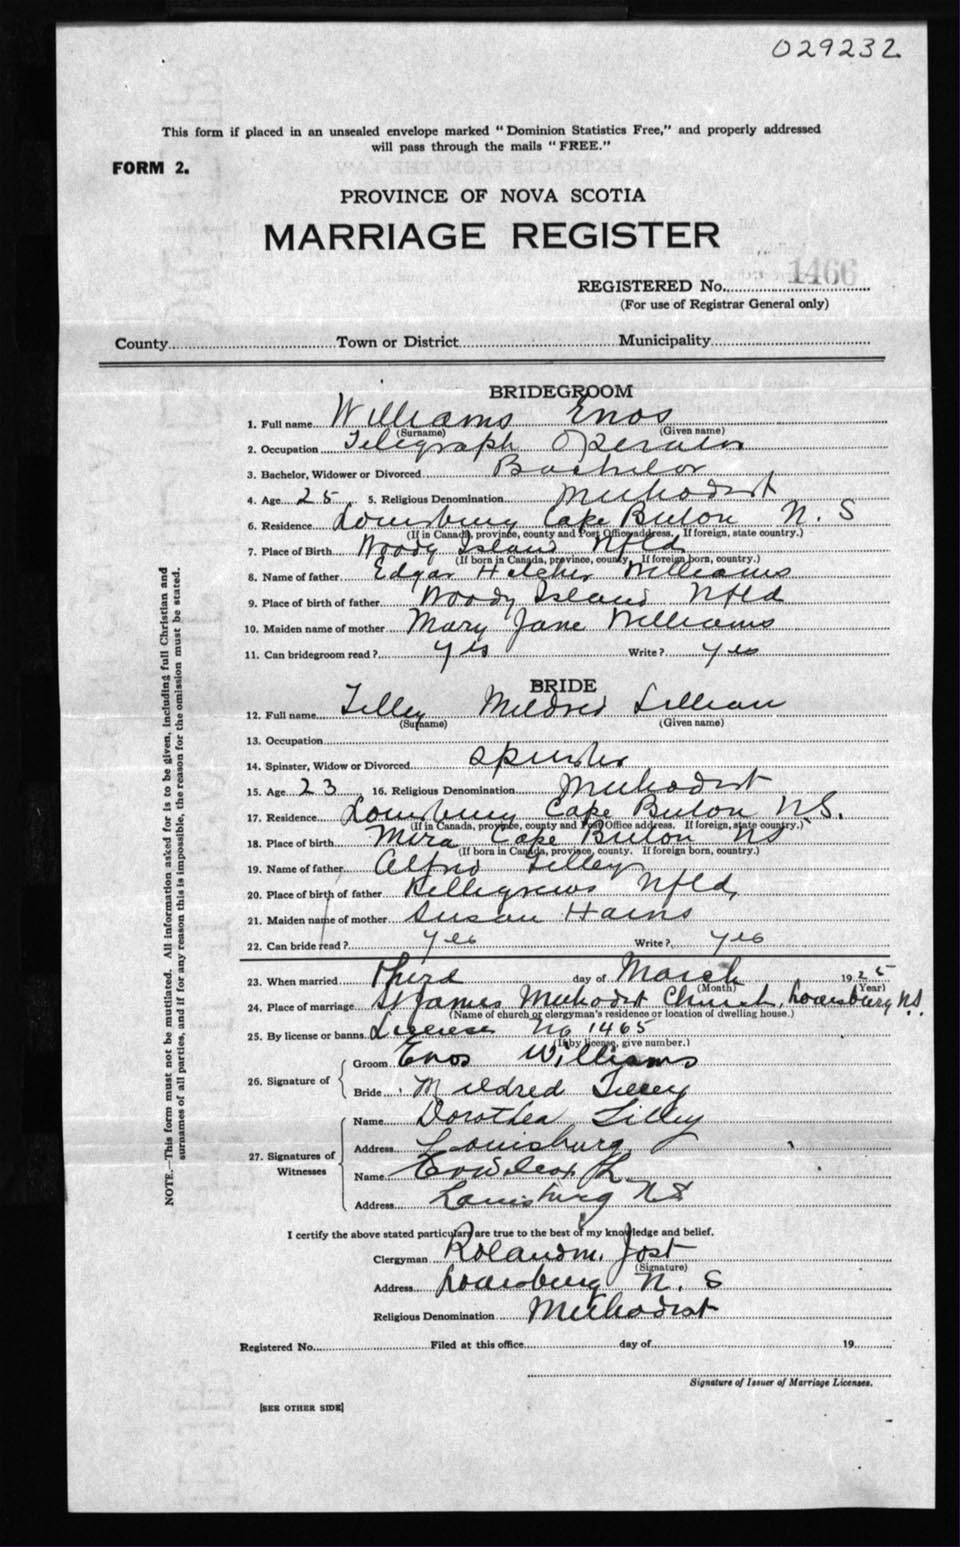 029232
This form if placed in an unsealed envelope marked "Dominion Statistics Free," and properly addressed
will pass through the mails "FREE."
FORM 2.
PROVINCE OF NOVA SCOTIA
MARRIAGE REGISTER
REGISTERED No. 1466
(For use of Registrar General only)
County Town or District Municipality
BRIDEGROOM
1. Full name Williams Enos
(Surname) (Given name)
2. Occupation Telegraph Operator
3. Bachelor, Widower or Divorced Bachelor
4. Age 25 5. Religious Denomination Methodist
6. Residence Louisburg Cape Breton N. S
(If in Canada, province, county and Post Office address. If foreign, state country.)
7. Place of Birth Woody Island Nfld
(If born in Canada, province, county. If foreign born, country.)
8. Name of father Edgar Williams
9. Place of birth of father Woody Island Nfld
10. Maiden name of mother Mary Jane Williams
11. Can bridegroom read? yes Write? yes
BRIDE
12. Full name Tilley Mildred Lillian
(Surname) (Given name)
13. Occupation
14. Spinster, Widow or Divorced Spinster
15. Age 23 16. Religious Denomination Methodist
17. Residence Louisburg Cape Breton N.S.
(If in Canada, province, county and Post Office address. If foreign, state country.)
18. Place of birth Mira Cape Breton NS
(If born in Canada, province, county. If foreign born, country.)
19. Name of father Alfred Tilley
20. Place of birth of father Kelligrews Nfld,
21. Maiden name of mother Susan Hains
22. Can bride read? yes Write? yes
23. When married Third day of March 1925
(Month) (Year)
24. Place of marriage St James Methodist Church, Louisburg N.S.
(Name of church or clergyman's residence or location of dwelling house.)
25. By license or banns License No 1465
(If by license, give number.)
26. Signature of
Groom Enos Williams
Bride Mildred Tilley
27. Signatures of Witnesses
Name Dorothea Tilley
Address Louisburg
Name
Address Louisburg N S
I certify the above stated particulars are true to the best of my knowledge and belief.
Clergyman Roland M. Jost
(Signature)
Address Louisburg N. S
Religious Denomination Methodist
Registered No. Filed at this office day of 19
Signature of Issuer of Marriage Licenses.
[SEE OTHER SIDE]
NOTE.—This form must not be mutilated. All information asked for is to be given, including full Christian and
surnames of all parties, and if for any reason this is impossible, the reason for the omission must be stated.